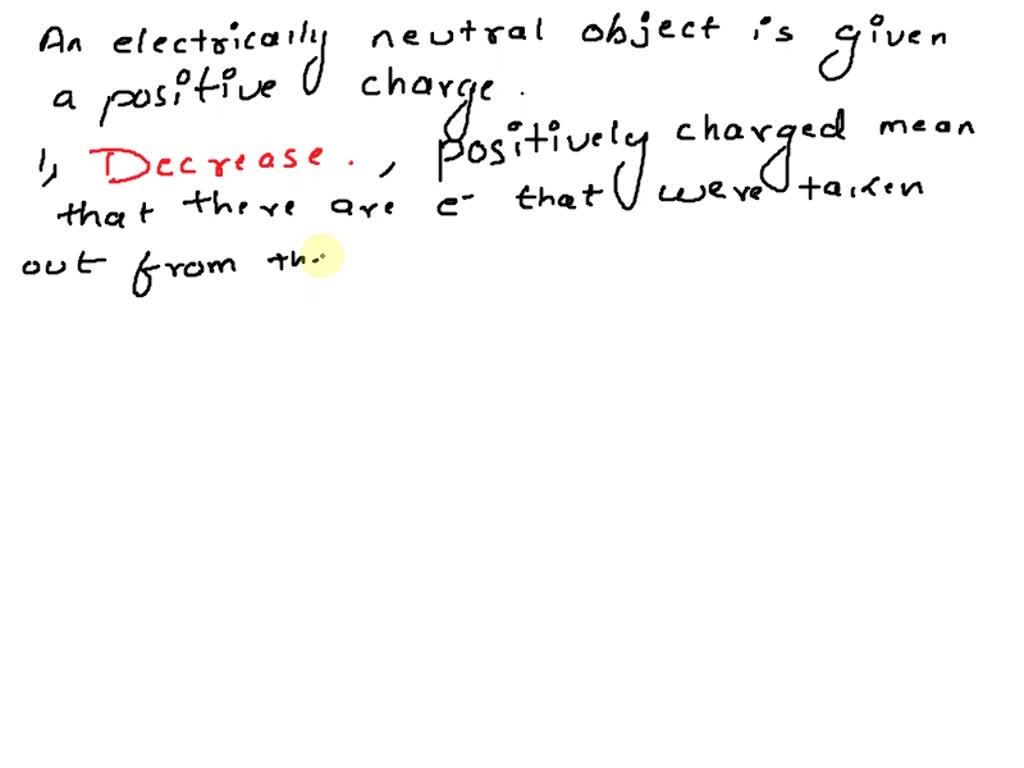 An electrically neutral object is given
a positive charge.
1, Decrease. , positively charged mean
that there are e- that were taken
out from th